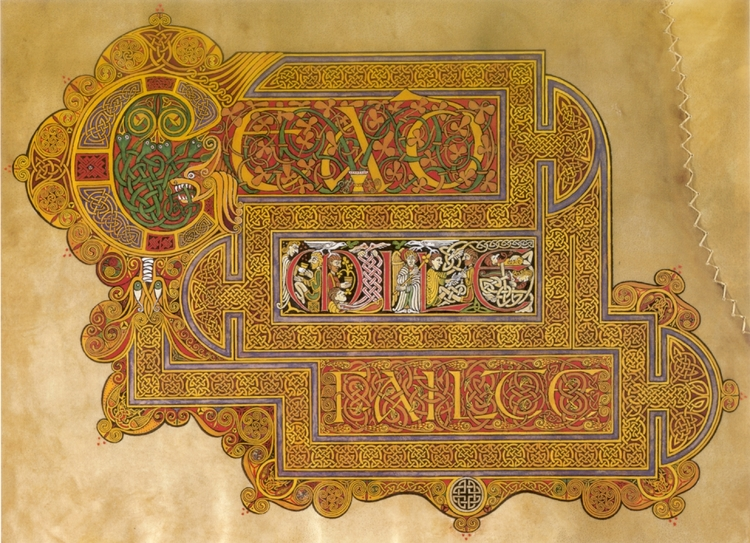 CEAD
MILE
FAILTE